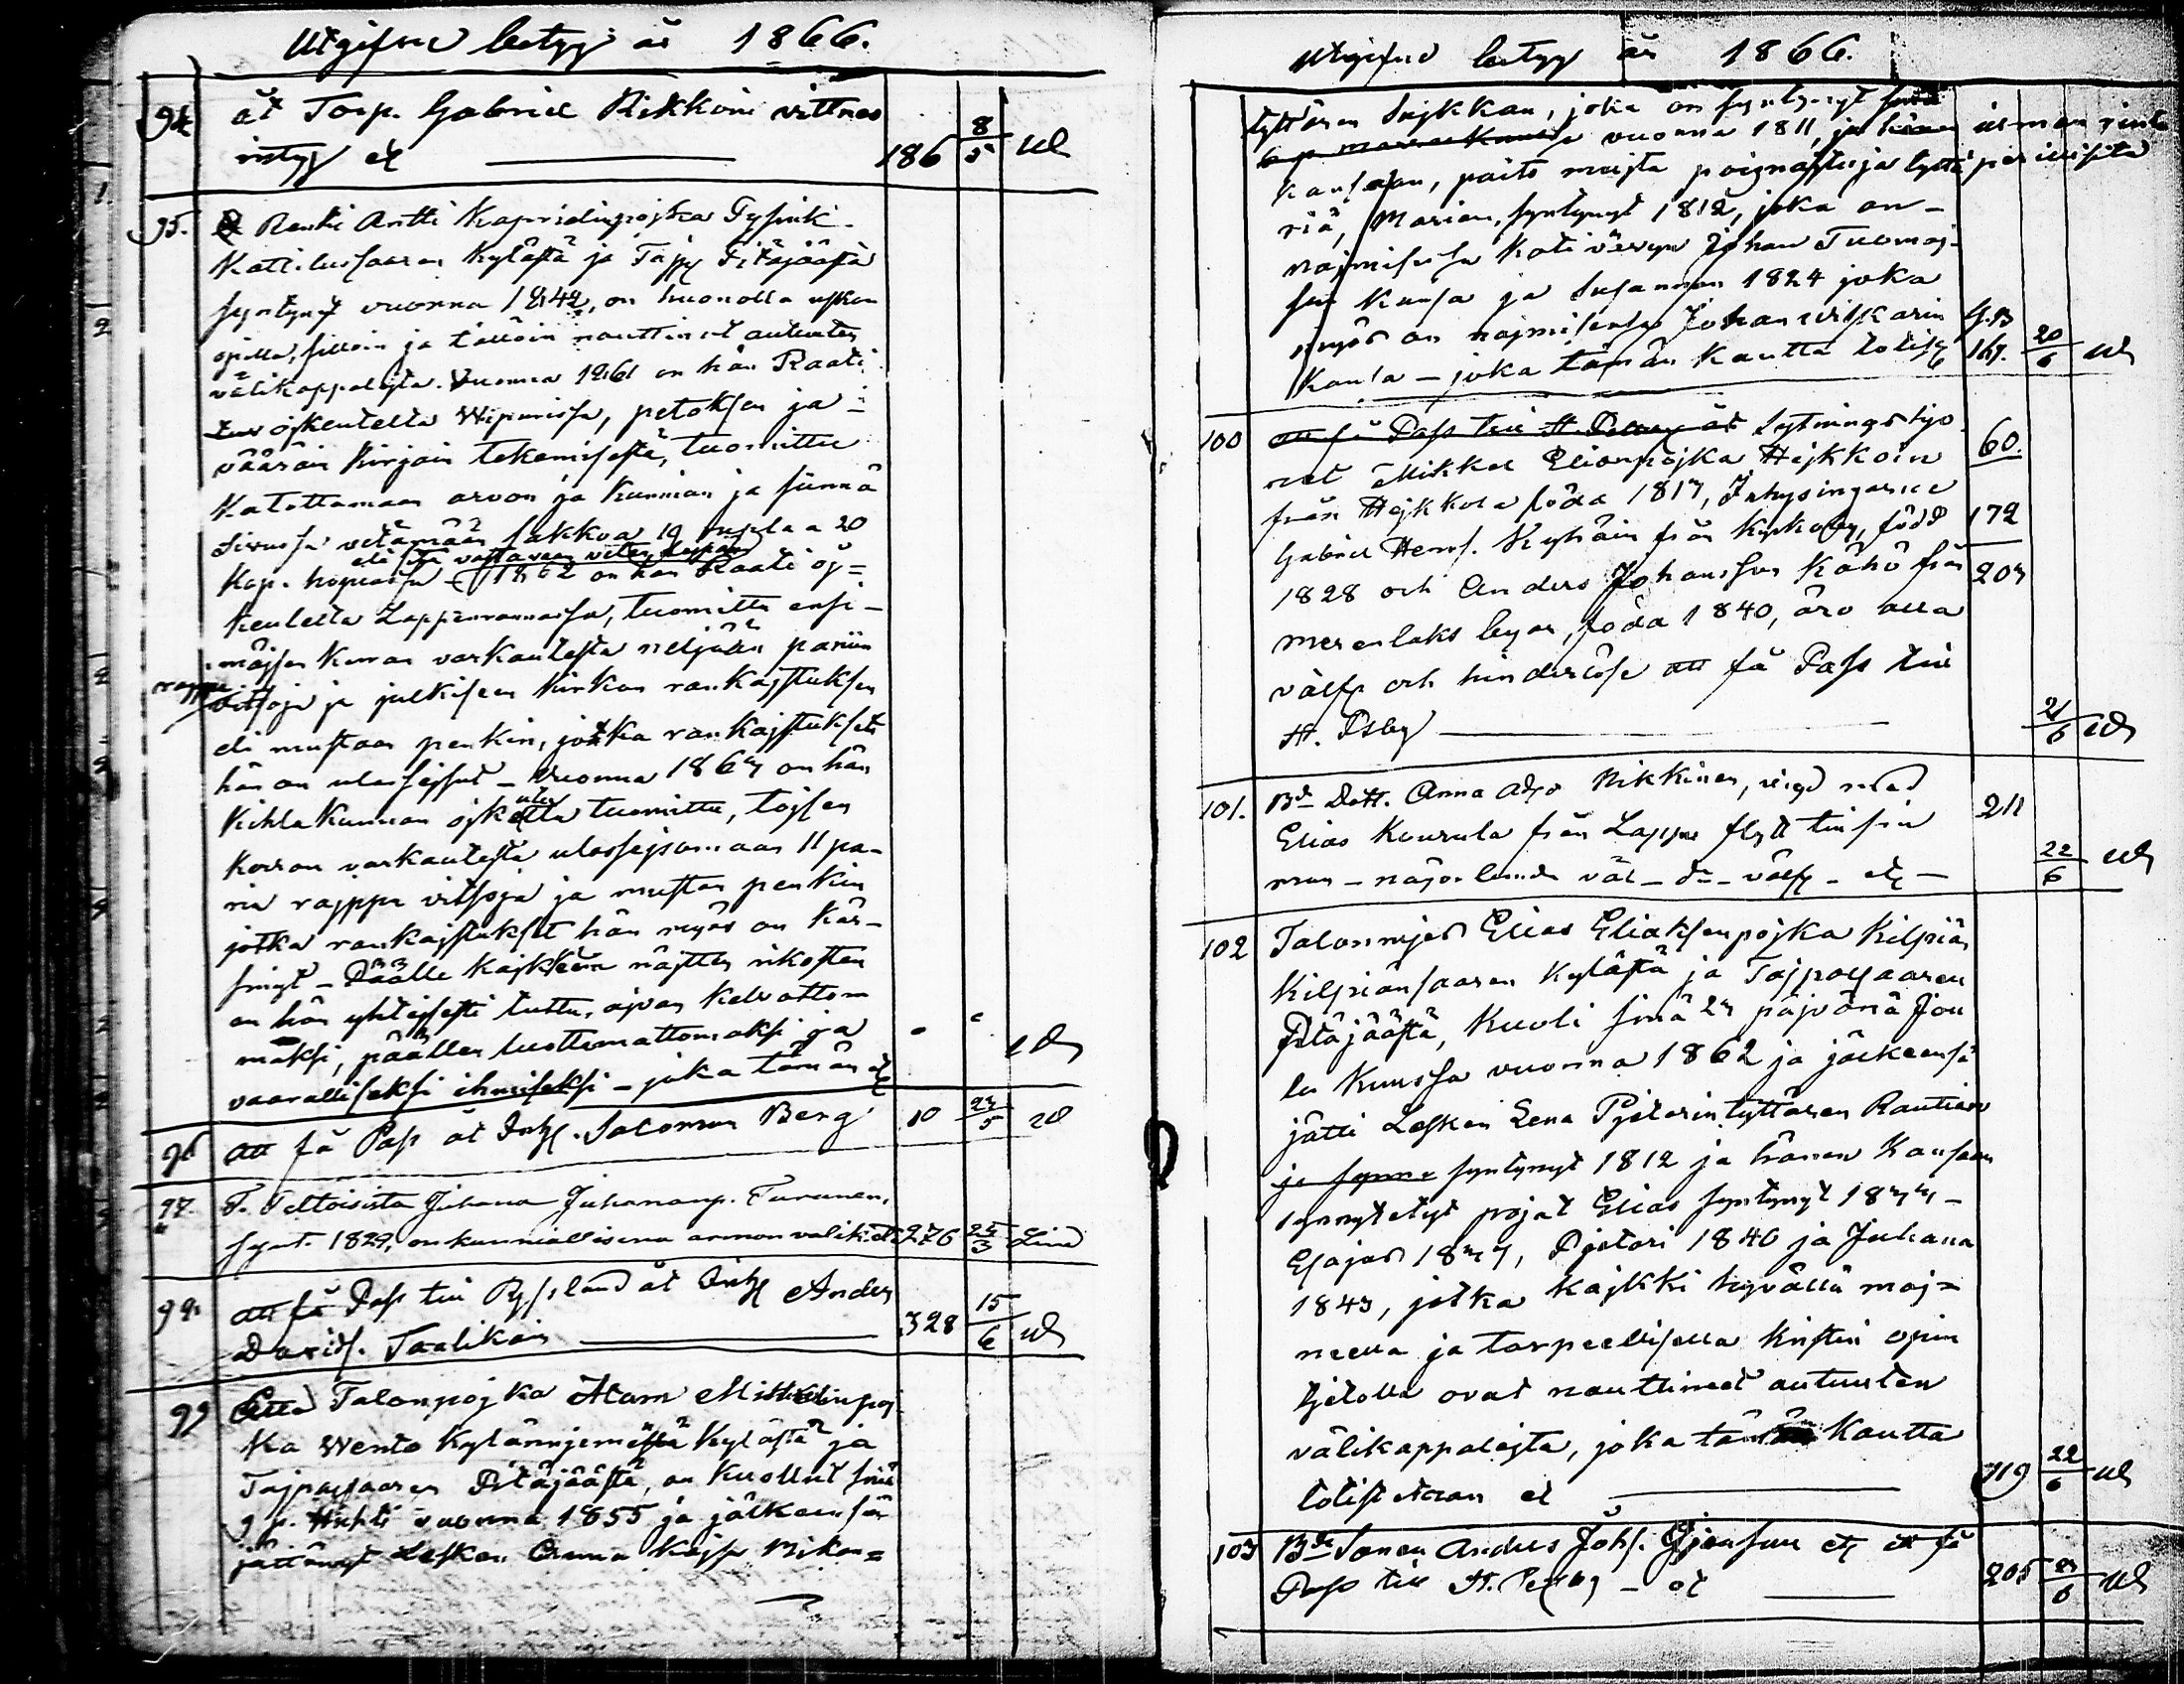 Utgifne betyg år 1866.
94 åt Torp. Gabriel Rikkoin vittnes
betyg etc 186 8/5 Ud
95. Renki Antti Kaprielinpojka
Kattilussaaren Kylästä ja Pitäjäästä
syntynyt vuonna 1842, on huonolla uskon
opilla, silloin ja tällöin nauttinut autuuten
välikappaleista. Vuonna 1861 on hän Raati
ojkeutelta Wipurissa, petoksen ja
väärän kirjain tekemisestä, tuomittu
Katottamaan arvon ja kunnian ja sünnä
sivussa vetämään sakkoa 19 ruplaa 20
Kop. hopeassa
eli sitä vastaavaan veten
1862 on hän Raati oj=
keutelta Lappenrannassa, tuomittu ensi-
mäjsen kerran varkautesta neljään pariin
rajppa
vitsoja ja julkiseen kirkon rankajstuksen
eli mustaan penkin, jotka rankajstukset
hän on ulosseissut - Vuonna 1864 on hän
Kihlakunnan ojkeutelta tuomittu, tojsen
kerran varkautesta ulosseisomaan 11 pa-
ria rajppa vitsoja ja mustan penkin
jotka rankajstukset hän myös on kär-
sinyt - Päälle kajkkein näjtten rikosten
on hän yhtejsesti tuttu, ajvan kelvottom
maksi, päällen luottamattomaksi ja
vaaralliseksi ihmiseksi - joka tämän etc Ud
96 att få Pass åt Inhs. Salomon Berg 10 24/5 Ud
97. T. Teltoisista Juhana Juhananp. Turunen,
synt. 1829, on kunniallisena armonvälik. etc 276 25/3 Lind
98. att få Pass till Ryssland åt Inhs Anders
Davids. Taalikain 328 15/6 Ud
99 Että Talonpojka Atam Mikkelinpoj
ka Wento Kylänniemestä Kylästä ja
Tajpalsaaren Pitäjäästä, on kuollut sinä
9 p. Huhti vuonna 1855 ja jälkeensä
jättänyt Lesken Anna Kajsa Mikon=
Utgifne betyg år 1866.
tyttären, joka on syntynyt
vuonna 1811, ja
Kanssaan, pajtsi muista poignastu ja tyttä perillisitä
riä, Marian, syntynyt 1812, joka on
najmisessa Koti vävyn Johan Tuomaj-
sen kansa ja Susannan 1824 joka
myös on najmisessa Johan
Kansa - joka tämän kautta totist. 167. 20/6 Ud
100 att få Pass till St. Petersby åt Sytningshjo
net Mikkel Eliaanpojka Hejkkoin 60.
från Hejkkola föda 1817, Inhysingarne
Gabriel Henrs. Kyhäin från, född 172
1828 och Anders Johansson Kähö från 207
Merenlaks byar, föda 1840, äro alla
välfr. och hinderlöse att få Pass till
St. Psby 21/6 Ud
101. Bde Dott. Anna Nikkinen, vigd med
Elias Kousula från Lappe flytt till sin 211
man - näjor lunda väl - dn - välfr - etc - 22/6 Ud
102 Talonmjes Elias Eliaksenpojka Kilpiän
Kilpiänsaaren Kylästä ja Tajpalsaaren
Pitäjäästä, kuoli sinä 27 päjvänä Jou
lu Kuussa vuonna 1862 ja jälkeensä
jätti Lesken Lena Pjetarintyttären Rautiain
ja synne syntynyt 1812 ja hänen kanssaan
synnytetyt pojat Elias syntynyt 1834
Esajas 1837, Pjetari 1840 ja Juhana
1843, jotka kajkki hyvällä maj=
neella ja tarpeellisella kristin opin
tjetolla ovat nauttineet autuuten
välikappalejsta, joka tämän kautta
totistetaan etc 319 22/6 Ud
103 Bde Sonen Anders Johs. etc att få
Pass till St. Petersby - etc 205 23/6 Ud